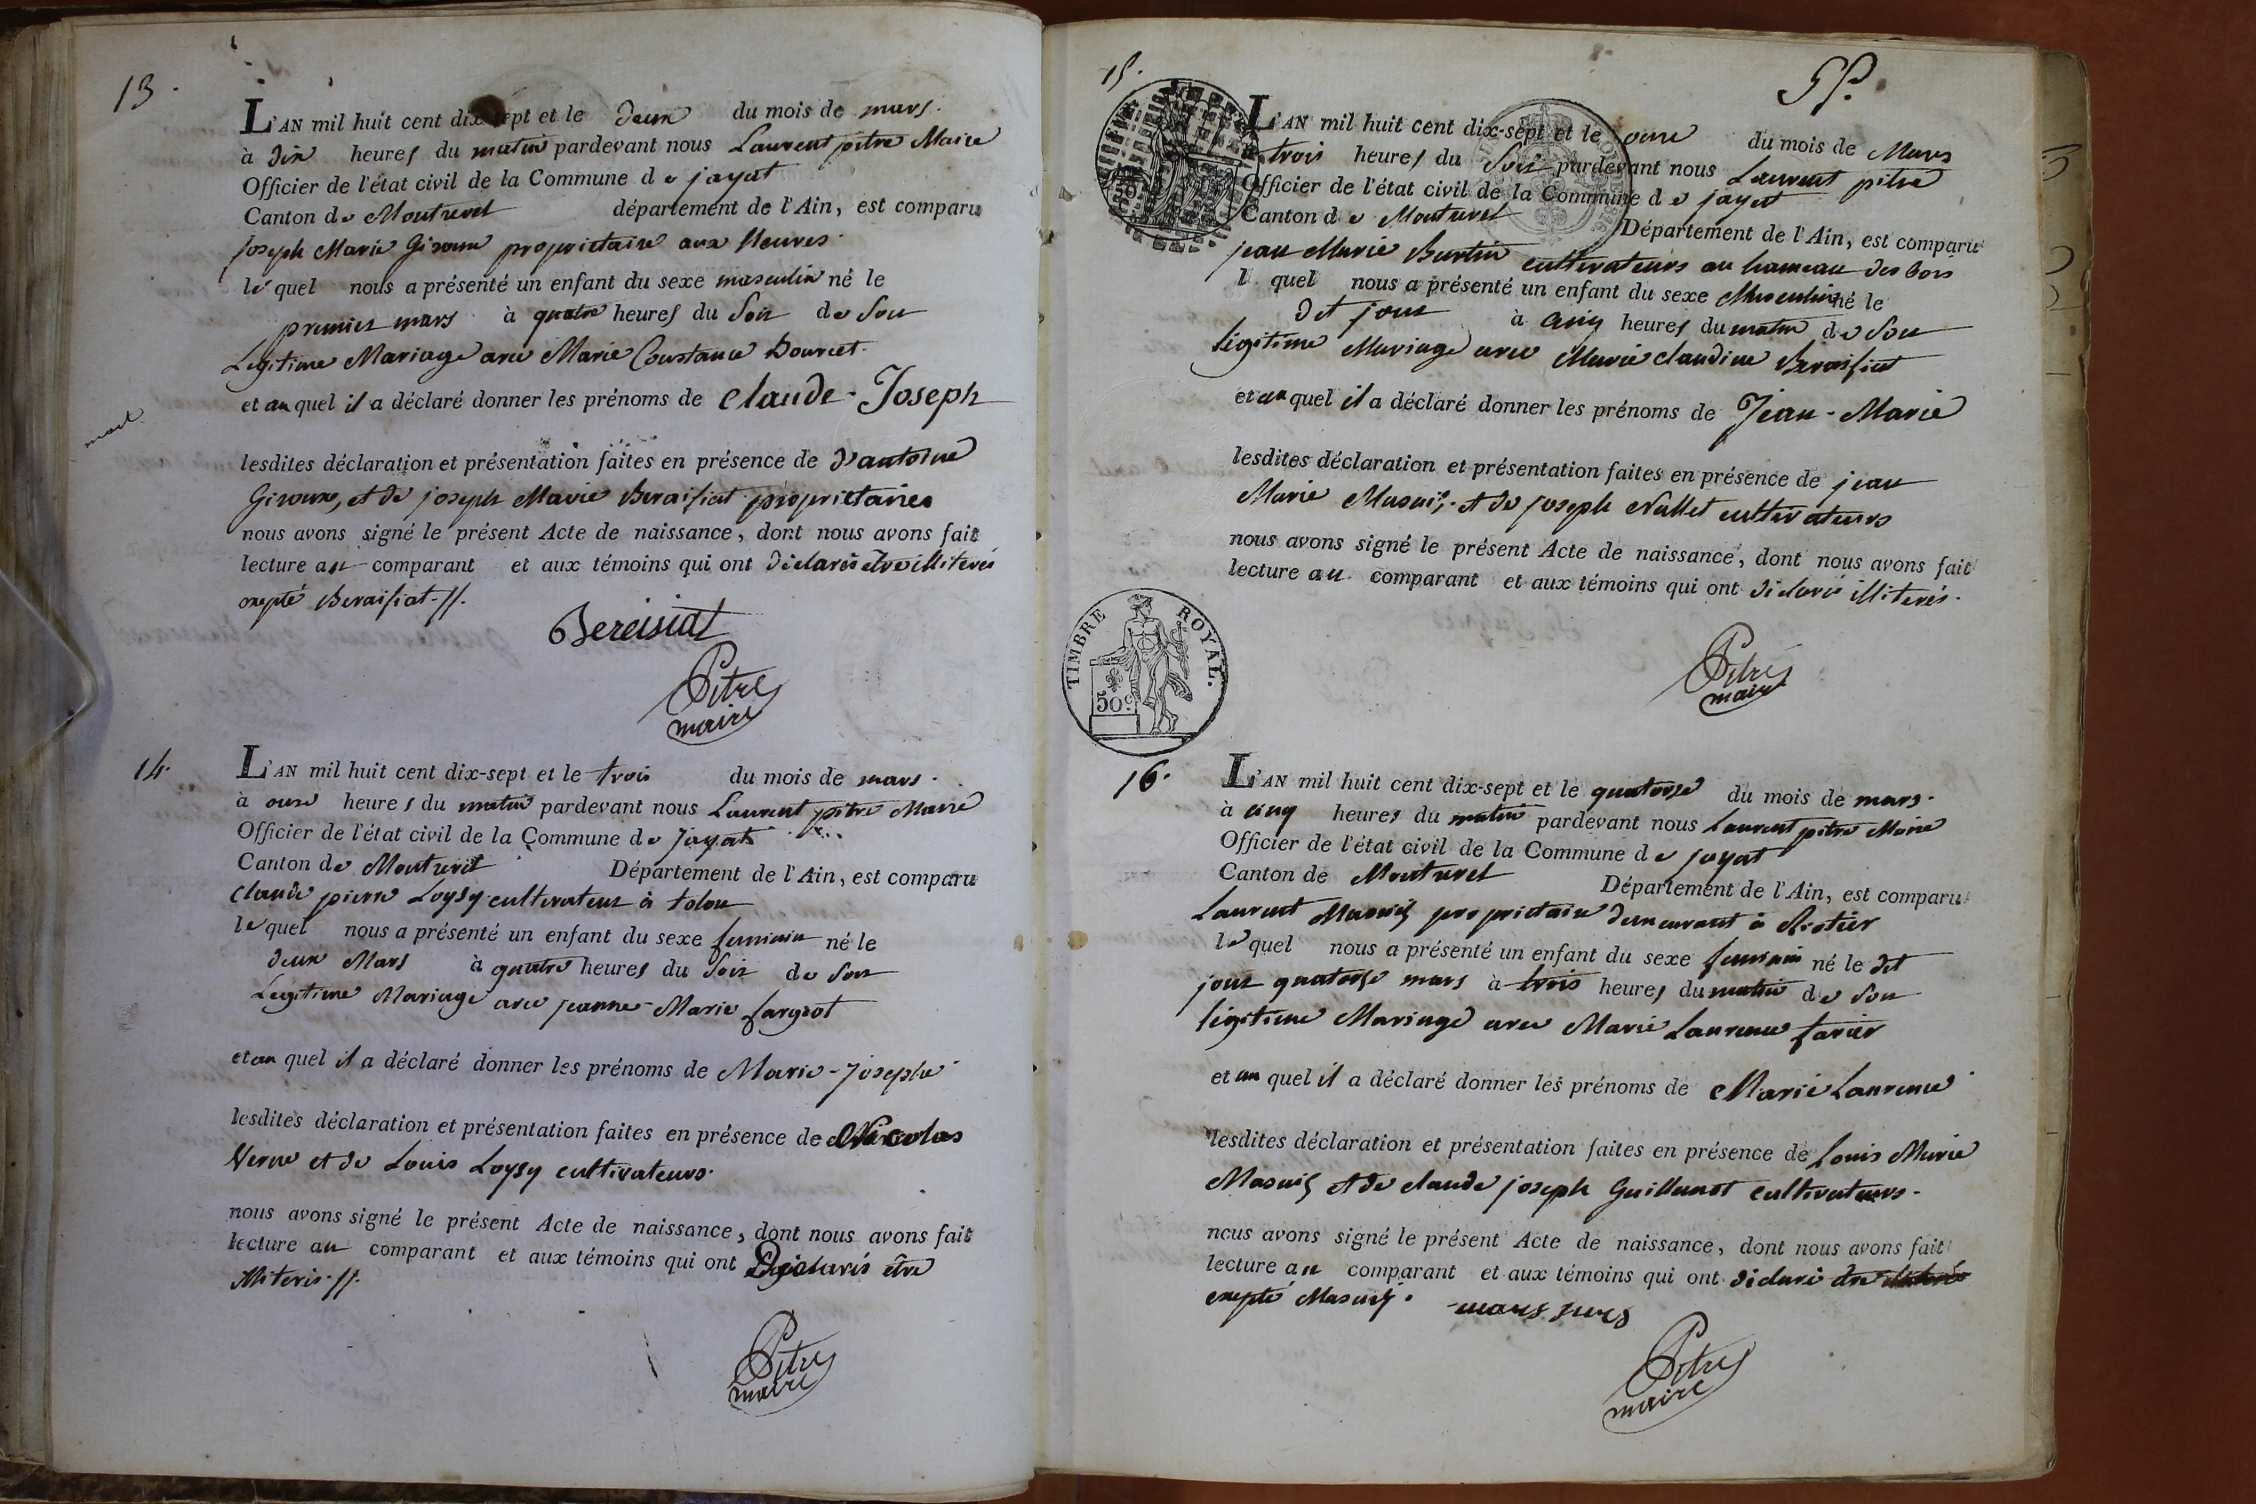 13.
L'AN mil huit cent dix-sept et le deux du mois de mars.
à dix heures du matin pardevant nous Laurent pitre Maire
Officier de l'état civil de la Commune de jayat
Canton de Montrevel département de l'Ain, est comparu
joseph Marie Giroux proprietaire aux
le quel nous a présenté un enfant du sexe masculin né le
premier mars à quatre heures du Soir de Son
Legitime Mariage avec Marie Constance
et au quel il a déclaré donner les prénoms de Claude-Joseph
lesdites déclaration et présentation faites en présence de d'antoine
Giroux, et de joseph Marie Beraisiat proprietaires
nous avons signé le présent Acte de naissance, dont nous avons fait
lecture au comparant et aux témoins qui ont déclarés être illiterés
exepté Beraisiat.
Bereisiat
Pitre
maire
14.
L'AN mil huit cent dix-sept et le trois du mois de mars.
à onze heures du matin pardevant nous Laurent pitre Maire
Officier de l'état civil de la Commune de Jayat
Canton de Montrevel Département de l'Ain, est comparu
Claude pierre Loysy cultivateur à tolon
le quel nous a présenté un enfant du sexe feminin né le
deux Mars à quatre heures du Soir de Son
Legitime Mariage avec jeanne-Marie
et au quel il a déclaré donner les prénoms de Marie-josephe
lesdites déclaration et présentation faites en présence de Nicolas
Verne et de Louis Loysy cultivateurs.
nous avons signé le présent Acte de naissance, dont nous avons fait
lecture au comparant et aux témoins qui ont Déclarés être
illiterés.
Pitre
maire
15.
L'AN mil huit cent dix-sept et le onze du mois de Mars
à trois heures du Soir pardevant nous Laurent pitre
Officier de l'état civil de la Commune de jayat
Canton de Montrevel Département de l'Ain, est comparu
jean Marie Burtin cultivateurs au hameau des bois
l quel nous a présenté un enfant du sexe Masculin né le
dit jour à cinq heures du matin de Son
légitime Mariage avec Marie claudine Beraisiat
et au quel il a déclaré donner les prénoms de Jean-Marie
lesdites déclaration et présentation faites en présence de jean
Marie Masuiy et de joseph Nallet cultivateurs
nous avons signé le présent Acte de naissance, dont nous avons fait
lecture au comparant et aux témoins qui ont déclaré illiterés.
Pitre
maire
TIMBRE ROYAL.
50 c.
16.
L'AN mil huit cent dix-sept et le quatorze du mois de mars.
à cinq heures du matin pardevant nous Laurent pitre Maire
Officier de l'état civil de la Commune de jayat
Canton de Montrevel Département de l'Ain, est comparu
Laurent Masuiy proprietaire demeurant à
le quel nous a présenté un enfant du sexe feminin né le dit
jour quatorze mars à trois heures du matin de Son
légitime Mariage avec Marie Laurence farier
et au quel il a déclaré donner les prénoms de Marie Laurence
lesdites déclaration et présentation faites en présence de Louis Marie
Masuiy et de claude joseph Guillermot cultivateurs.
nous avons signé le présent Acte de naissance, dont nous avons fait
lecture au comparant et aux témoins qui ont déclaré être
exepté Masuiy.
Pitre
maire